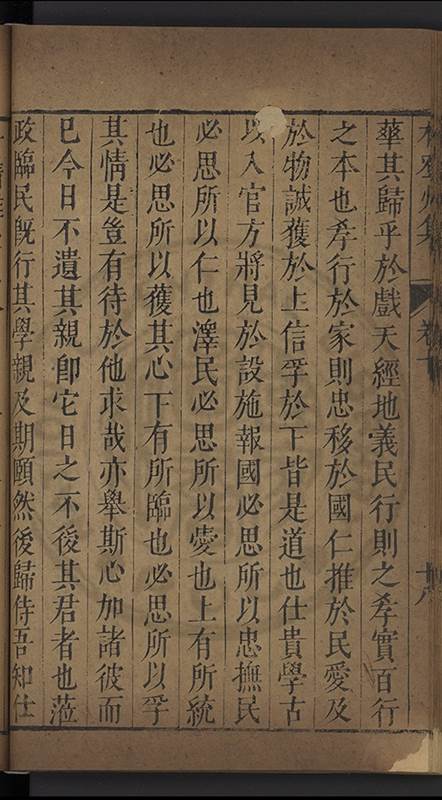 華其歸乎於戲天經地義民行則之孝實百行
之本也孝行於家則忠移於國仁推於民愛及
於物誠獲於上信孚於下皆是道也仕貴學古
以入官方將見於設施報國必思所以忠撫民
必思所以仁也澤民必思所以愛也上有所統
也必思所以獲其心下有所臨也必思所以孚
其情是豈有待於他求哉亦舉斯心加諸彼而
已今日不遺其親卽它日之不後其君者也蒞
政臨民旣行其學親及期頤然後歸侍吾知仕